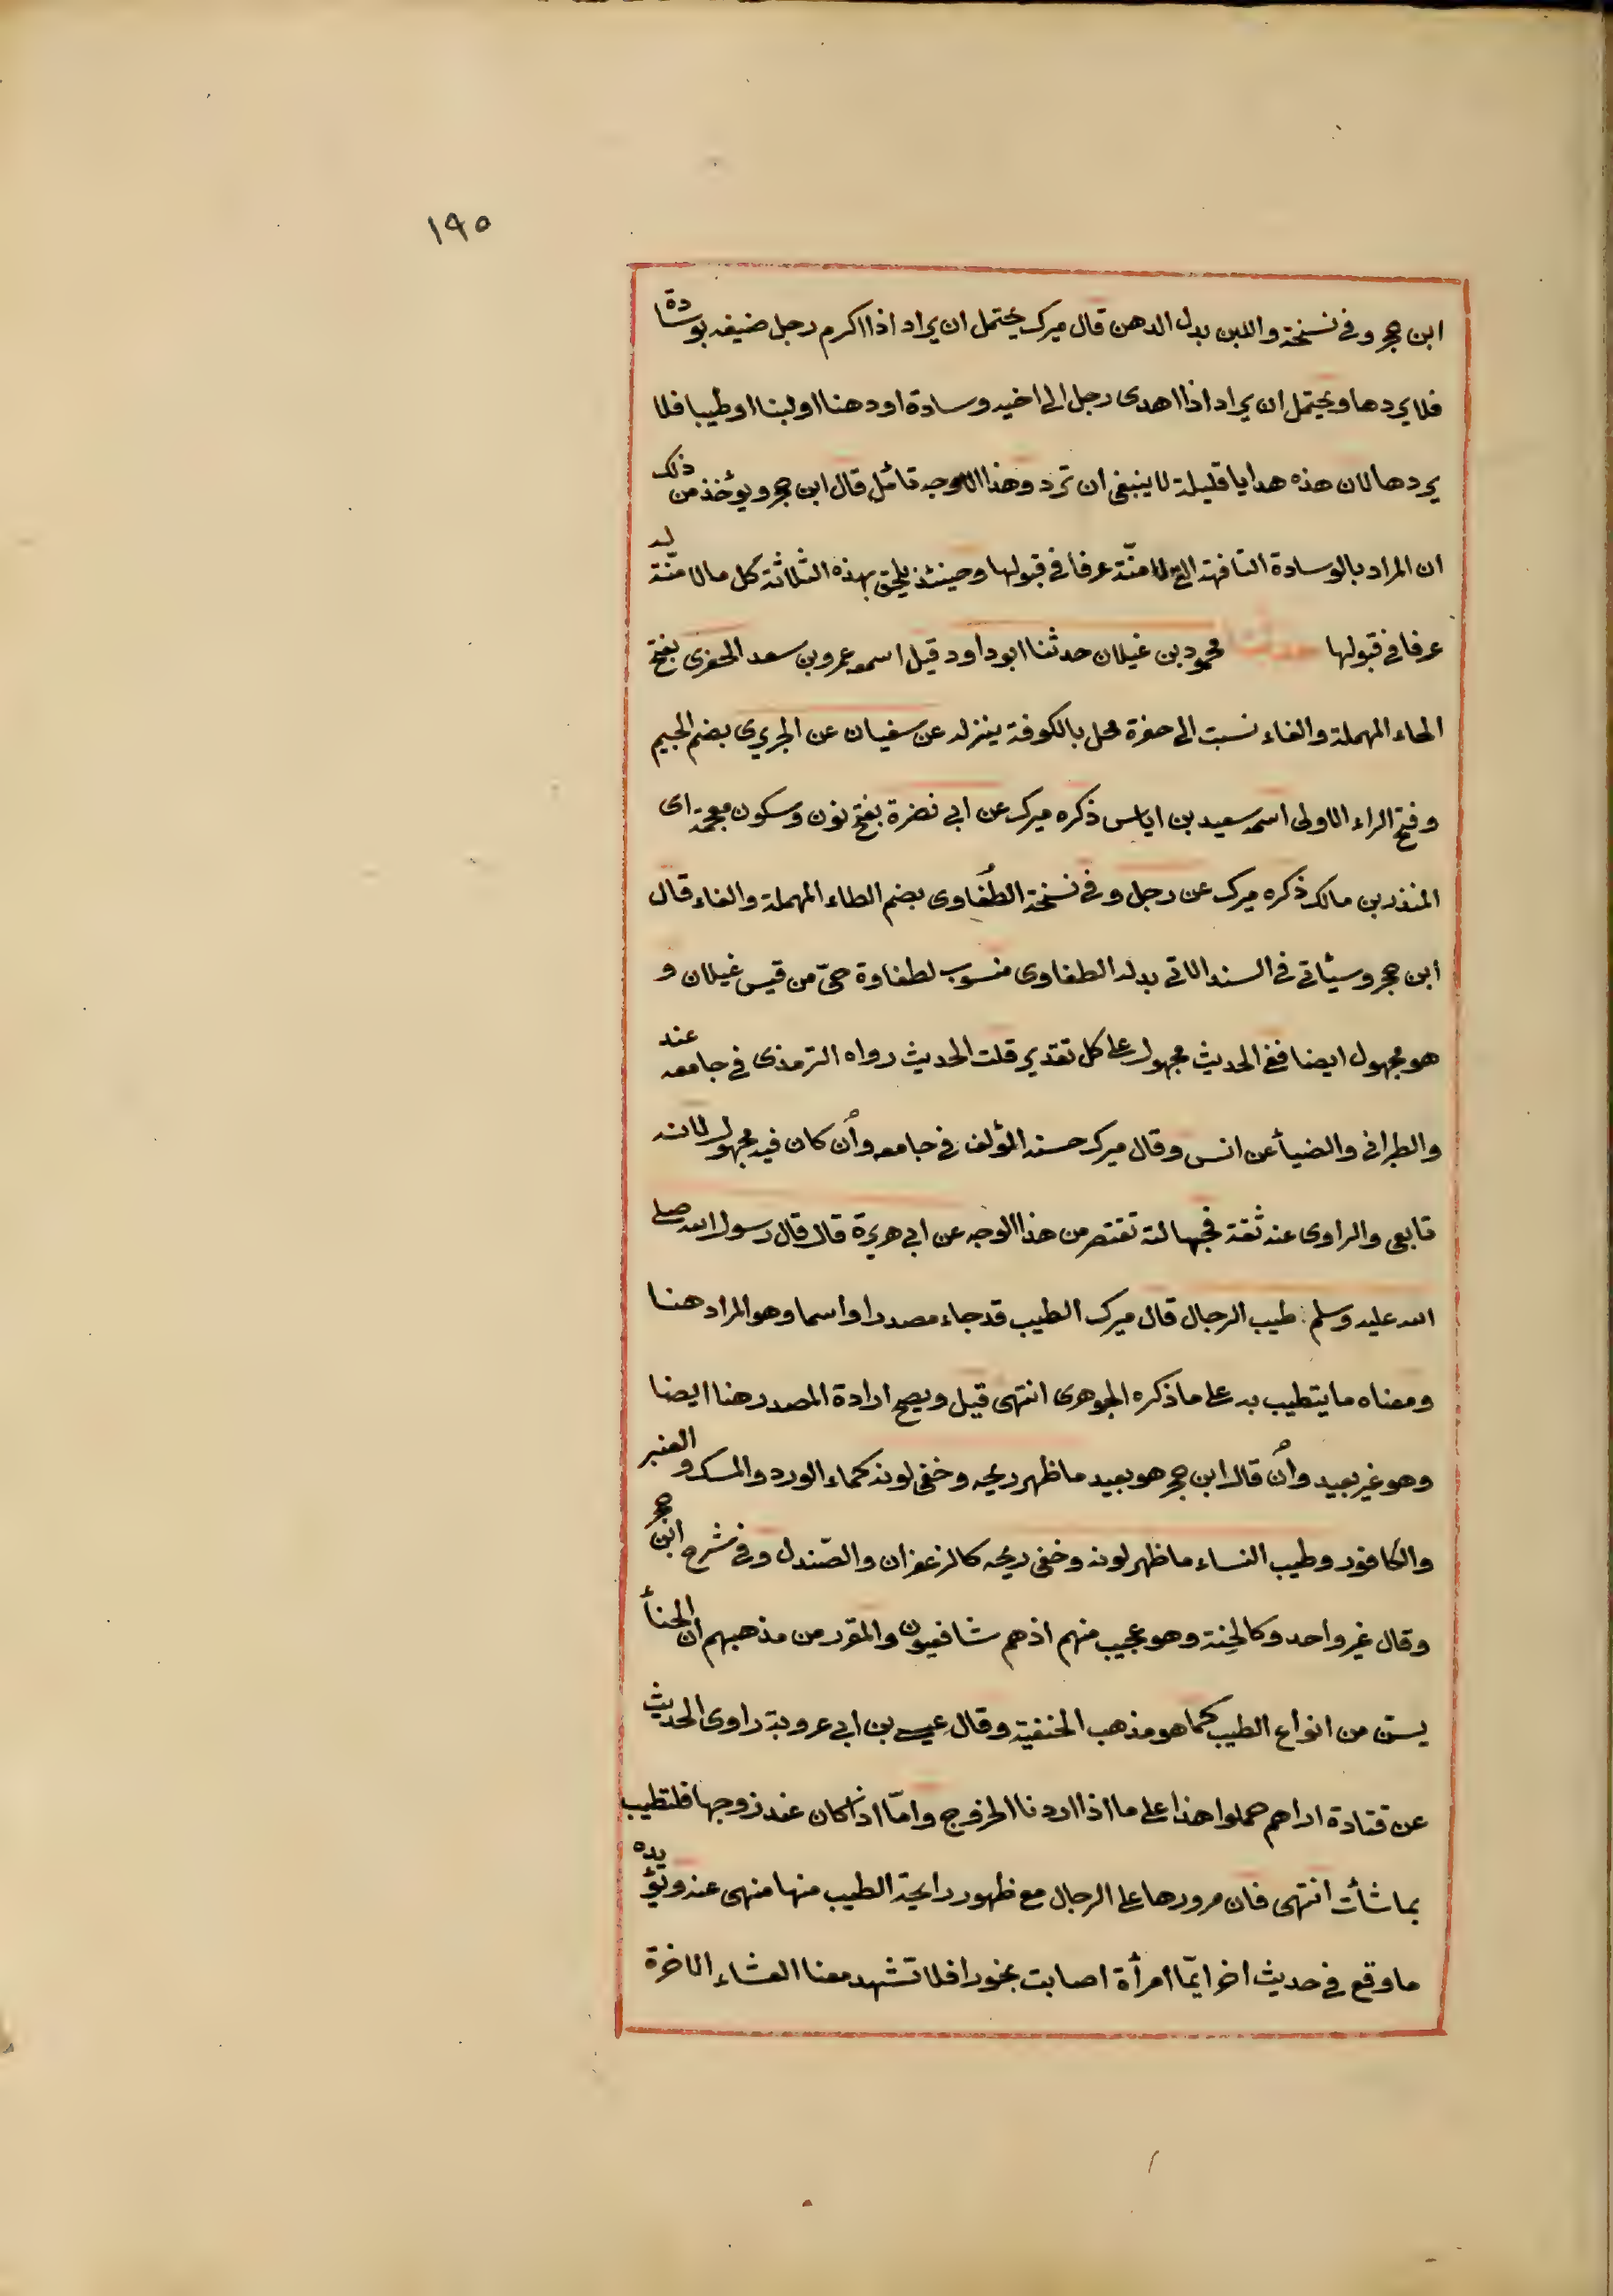 ١٩٥
ابن حجر وفى نسخة واللبن بدل الدهن قال ميرك يحتمل ان يراد اذا اكرم رجل ضيفه بوسادة
فلا يردها ويحتمل ان يراد اذا اهدى رجل الى اخيه وسادة او دهنا او لبنا او طيبا فلا
يردها لان هذه هدايا قليلة لا ينبغى ان ترد وهذا الاوجه تأمل قال ابن حجر ويؤخذ من ذلك
ان المراد بالوسادة التافهة التى لا منّة عرفا فى قبولها وحينئذ يلحق بهذه الثلاثة كل ما لا منّة له
عرفا فى قبولها حدثنا محمود بن غيلان حدثنا ابو داود قيل اسمه عمرو بن سعد الحفرى بفتح
الحاء المهملة والفاء نسبت الى حفرة محل بالكوفة ينزله عن سفيان عن الجريرى بضم الجيم
وفتح الراء الاولى اسمه سعيد بن اياس ذكره ميرك عن ابى نضرة بفتح نون وسكون معجمة اى
المنذر بن مالك ذكره ميرك عن رجل وفى نسخة الطُفاوى بضم الطاء المهملة والفاء قال
ابن حجر وسيأتى فى السند الاتى بدله الطفاوى منسوب لطفاوة حىّ من قيس غيلان و
هو مجهول ايضا ففى الحديث مجهول على كل تقدير قلت الحديث رواه الترمذى فى جامعه عنه
والطبرانى والضيأ عن انس وقال ميرك حسنه المؤلف فى جامعه وأن كان فيه مجهول لانه
تابعى والراوى عنه ثقة فجهالته تغتفر من هذا الوجه عن ابى هريرة قال قال رسول الله صلى
الله عليه وسلم طيب الرجال قال ميرك الطيب قد جاء مصدرا واسما وهو المراد هنا
ومعناه ما يتطيب به على ما ذكره الجوهرى انتهى قيل ويصح ارادة المصدر هنا ايضا
وهو غير بعيد وأن قال ابن حجر هو بعيد ما ظهر ريحه وخفى لونه كماء الورد والمسك والعنبر
والكافور وطيب النساء ما ظهر لونه وخفى ريحه كالزعفران والصّندل وفى شرح ابن حجر
وقال غير واحد وكالحنة وهو عجيب منهم اذ هم شافعيون والمقرر من مذهبهم ان الحنأ
يسن من انواع الطيب كما هو مذهب الحنفية وقال عيسى بن ابى عروبة راوى الحديث
عن قتادة اراهم حملوا هذا على ما اذا اردنا الخروج وامّا اذا كان عند زوجها فلتطيب
بما شأت انتهى فان مرورها على الرجال مع ظهور رايحة الطيب منها منهى عنه ويؤيده
ما وقع فى حديث اخر ايّما امرأة اصابت بخورا فلا تشهد معنا العشاء الاخرة